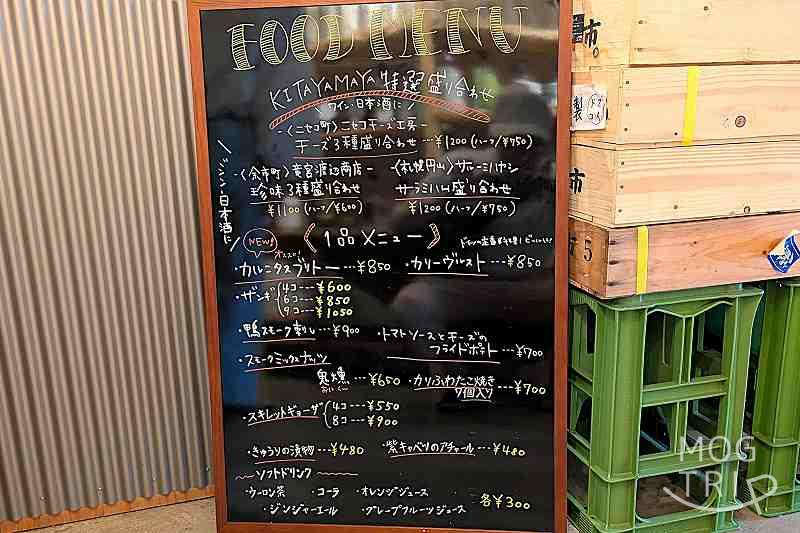 FOOD MENU
KITAYAMAYA 特選盛り合わせ
ワイン・日本酒に
-〈ニセコ町〉ニセコチーズ工房-
チーズ3種盛り合わせ…¥1200(ハーフ/¥750)
-〈余市町〉
珍味3種盛り合わせ
¥1100(ハーフ/¥600)
-〈札幌円山〉
サラミハム盛り合わせ
¥1200(ハーフ/¥750)
日本酒に
NEW!
オススメ!!
《1品メニュー》
・カルニタスブリトー…¥850
・カリーヴルスト…¥850
・ザンギ
4コ…¥600
6コ…¥850
9コ…¥1050
・鴨スモーク刺し…¥900
・トマトソースとチーズの
フライドポテト…¥700
・スモークミックスナッツ
鬼燻…¥650
・カリふわたこ焼き
7個入り…¥700
・スキレットギョーザ
4コ…¥550
8コ…¥900
・きゅうりの漬物…¥480
・紫キャベツのアチャール…¥480
ソフトドリンク
・ウーロン茶 ・コーラ ・オレンジジュース
・ジンジャーエール ・グレープフルーツジュース
各¥300
市。
製
市
5
MOG
TRIP